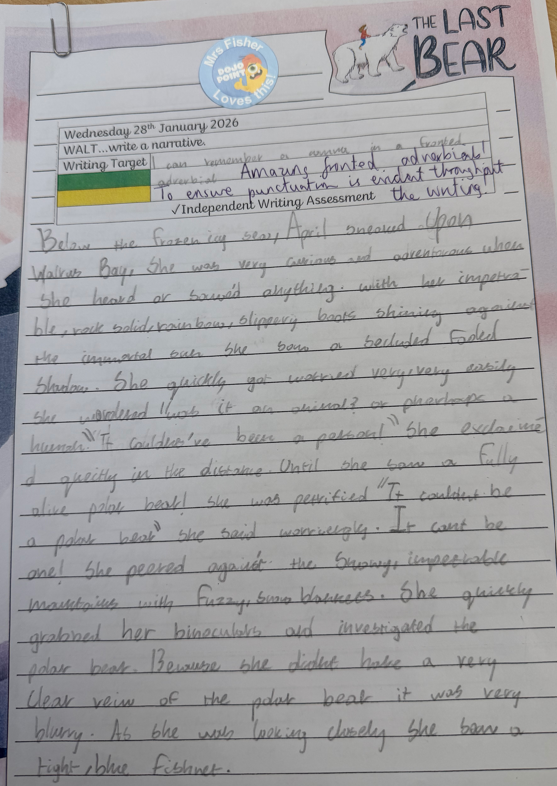 THE LAST
BEAR
Mrs Fisher
DOJO
POINT
Loves this!
Wednesday 28th January 2026
WALT...write a narrative.
Writing Target
I can remember a comma in a fronted
adverbial
Amazing fronted adverbial!
To ensure punctuation is evident throughout
the writing!
✓Independent Writing Assessment
Below the frozen icy seas, April sneaked Upon
Walrus Bay. She was very curious and adventurous when
she heard or sawed anything. with her impetra-
ble, rock solid, rainbow, slippery boots shining against
the immortal sun she saw a secluded faded
Shadow. She quickly got worried very, very easily
She wondered "was it an animal? or pherhaps a
human" "It couldent've been a person!" She exclaime
d queitly in the distance. Until she saw a fully
alive polar bear! she was petrified "It couldnt be
a polar bear" she said worrieyngly. It cant be
one! She peered against the Snowy, impeerable
mountains with fuzzy, snow blankees. She quickly
grabbed her binoculars and investigated the
polar bear. Because she didnt have a very
Clear veiw of the polar bear it was very
blurry. As she was looking closely she saw a
tight, blue fishnet.